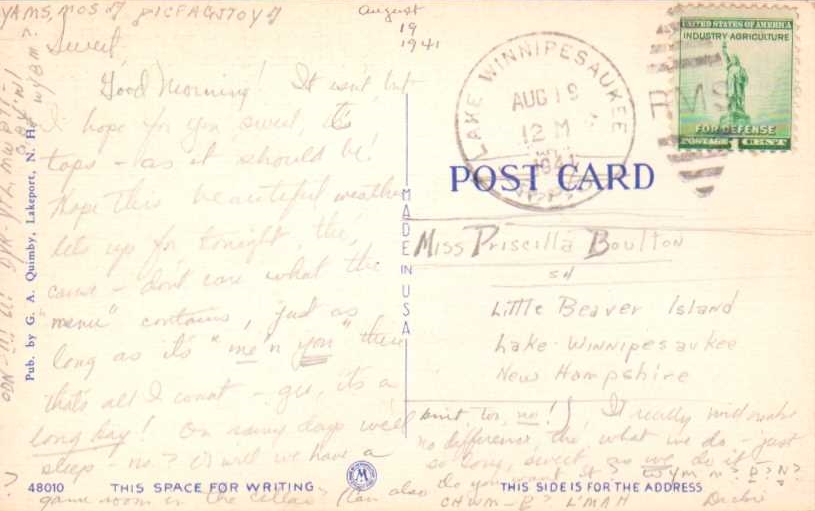 YAMS, MOS
August
19
1941
Sweet
Good Morning! It isn't, but
I hope for you sweet, it's
tops - as it should be!
Hope this beautiful weather
lets up for tonight, tho,
cause - don't care what the
"menu" contains, just as
long as it's "me'n you" there
that's all I want - gee, it's a
long day! On rainy days we'll
sleep - no? Or will we have a
game room in the cellar? Can also
knit too, no!) It really wild make
no difference, tho, what we do - just
so long, sweet, as we do it -
Do you want it? WYMM? P? N?
CHWM - P? L'MAH
Pub. by G. A. Quimby, Lakeport, N. H.
MADE IN USA
LAKE WINNIPESAUKEE
AUG 19
12 M
1941
R.P.O.
RMS
UNITED STATES OF AMERICA
INDUSTRY·AGRICULTURE
FOR DEFENSE
POSTAGE 1 CENT
POST CARD
Miss Priscilla Boulton
Little Beaver Island
Lake Winnipesaukee
New Hampshire
48010
THIS SPACE FOR WRITING
M
THIS SIDE IS FOR THE ADDRESS